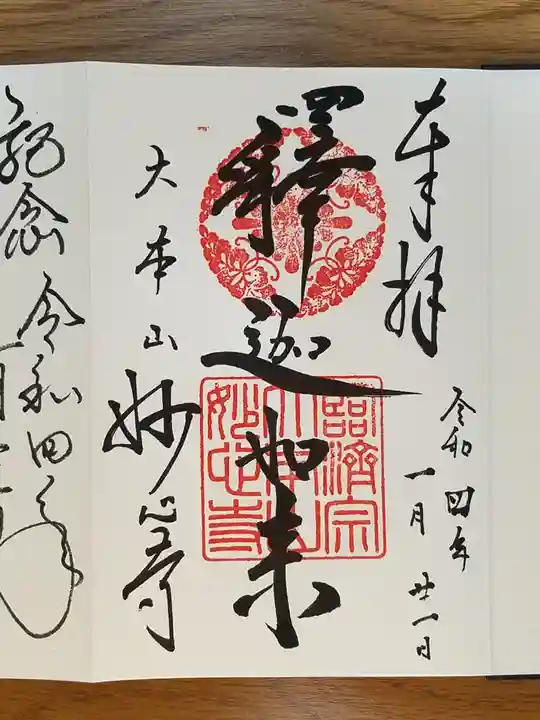 奉拝
令和四年
一月廿一日
釋迦如来
臨済宗
大本山
妙心寺
大本山
妙心寺
記念
令和四年
一月